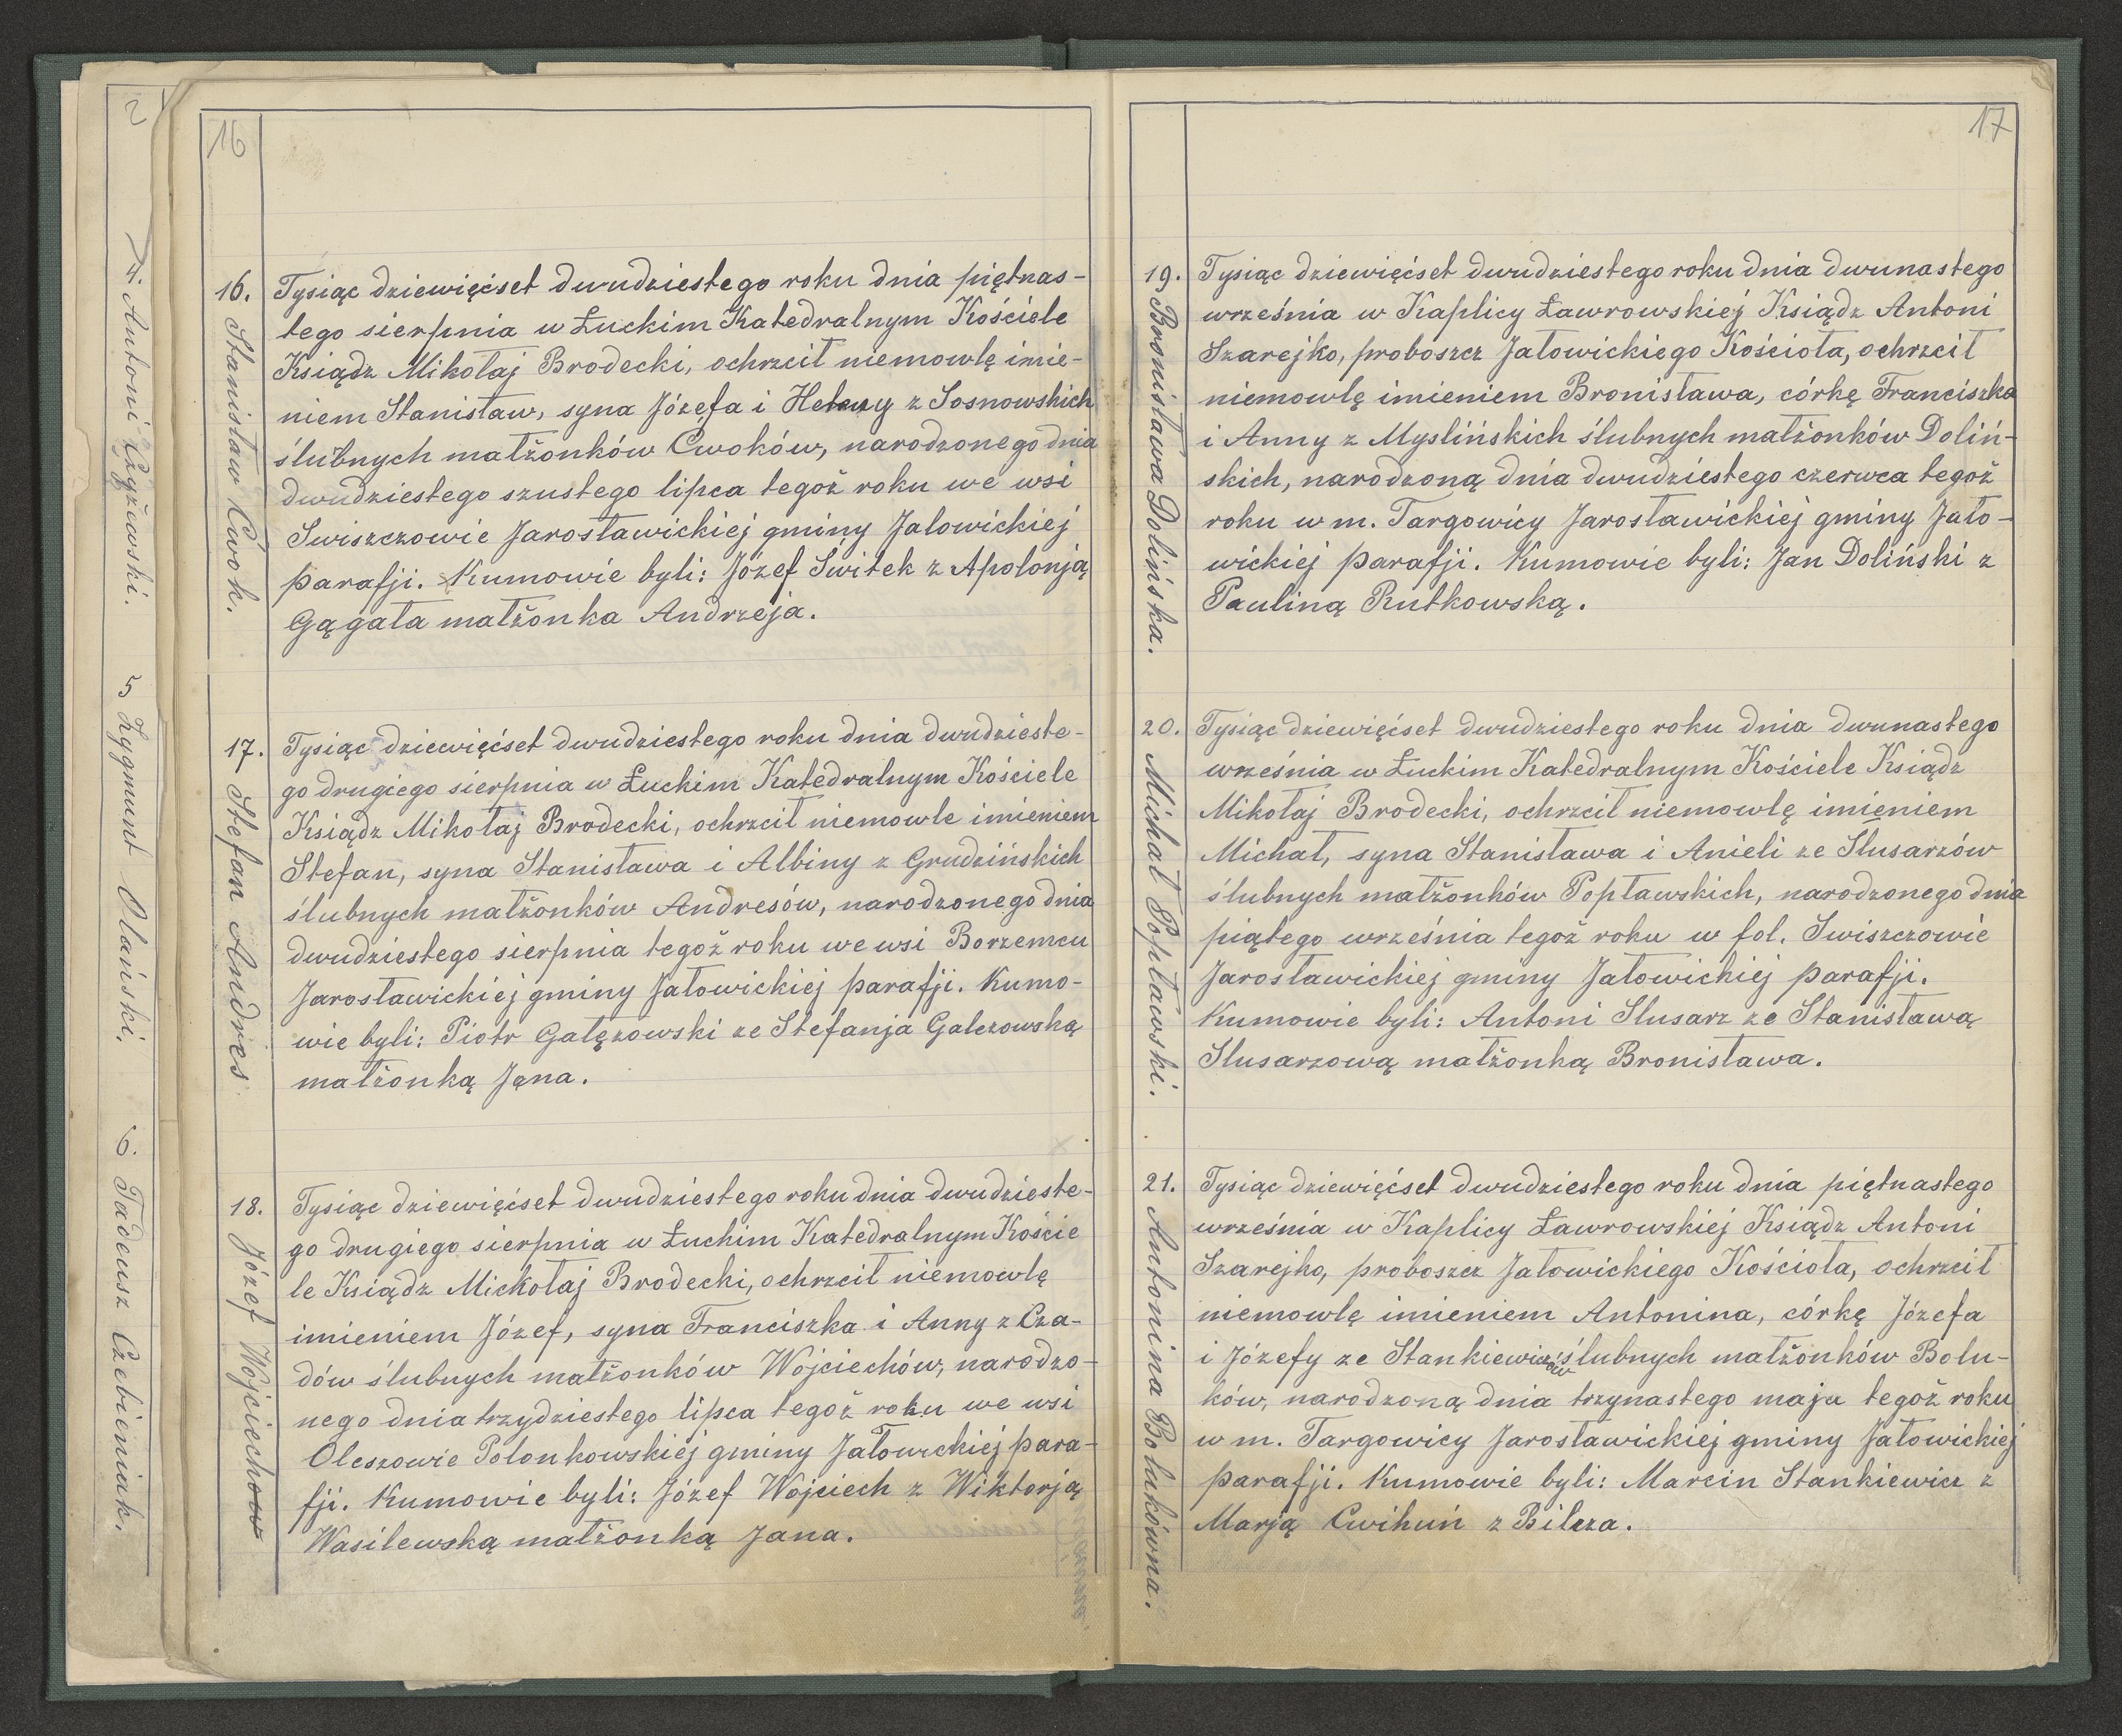 2
4. Antoni Czyżewski.
5 Zygmunt Olański.
6. Tadeusz Czebieniak.
16
16.
Stanisław Cwok.
Tysiąc dziewięćset dwudziestego roku dnia piętnas-
tego sierpnia w Łuckim Katedralnym Kościele
Ksiądz Mikołaj Brodecki, ochrzcił niemowlę imie-
niem Stanisław, syna Józefa i Heleny z Sosnowskich
ślubnych małżonków Cwoków, narodzonego dnia
dwudziestego szustego lipca tegoż roku we wsi
Swiszczowie Jarosławickiej gminy Jałowickiej
parafji. Kumowie byli: Józef Świtek z Apolonją
Gągała małżonka Andrzeja.
17.
Stefan Andres
Tysiąc dziewięćset dwudziestego roku dnia dwudzieste-
go drugiego sierpnia w Łuckim Katedralnym Kościele
Ksiądz Mikołaj Brodecki, ochrzcił niemowle imieniem
Stefan, syna Stanisława i Albiny z Grudzińskich
ślubnych małżonków Andresów, narodzonego dnia
dwudziestego sierpnia tegoż roku we wsi Borzemcu
Jarosławickiej gminy Jałowickiej parafji. Kumo-
wie byli: Piotr Gałęzowski ze Stefanja Galezowską
małżonką Jana.
18.
Józef Wojciechow
Tysiąc dziewięćset dwudziestego roku dnia dwudzieste-
go drugiego sierpnia w Łuckim Katedralnym Koście
le Ksiądz Mickołaj Brodecki, ochrzcił niemowlę
imieniem Józef, syna Franciszka i Anny z Cza-
dów ślubnych małżonków Wojciechów, narodzo-
nego dnia trzydziestego lipca tegoż roku we wsi
Oleszowie Połonkowskiej gminy Jałowickiej para-
fji. Kumowie byli: Józef Wojciech z Wiktorją
Wasilewską małżonką Jana.
17
19.
Bronisława Dolińska.
Tysiąc dziewięćset dwudziestego roku dnia dwunastego
września w Kaplicy Ławrowskiej Ksiądz Antoni
Szarejko, proboszcz Jałowickiego Kościoła, ochrzcił
niemowlę imieniem Bronisława, córkę Franciszka
i Anny z Myslińskich ślubnych małżonków Doliń-
skich, narodzoną dnia dwudziestego czerwca tegoż
roku w m. Targowicy Jarosławickiej gminy Jało-
wickiej parafji. Kumowie byli: Jan Doliński z
Pauliną Rutkowską.
20.
Michał Popławski.
Tysiąc dziewięćset dwudziestego roku dnia dwunastego
września w Łuckim Katedralnym Kościele Ksiądz
Mikołaj Brodecki, ochrzcił niemowlę imieniem
Michał, syna Stanisława i Anieli ze Ślusarzów
ślubnych małżonków Popławskich, narodzonego dnia
piątego września tegoż roku w fol. Swiszczowie
Jarosławickiej gminy Jałowickiej parafji.
Kumowie byli: Antoni Slusarz ze Stanisławą
Slusarzową małżonką Bronisława.
21.
Antonina Bolukówna.
Tysiąc dziewięćset dwudziestego roku dnia piętnastego
września w Kaplicy Ławrowskiej Ksiądz Antoni
Szarejko, proboszcz Jałowickiego Kościoła, ochrzcił
niemowlę imieniem Antonina, córkę Józefa
i Józefy ze Stankiewiczów ślubnych małżonków Bolu-
ków, narodzoną dnia trzynastego maja tegoż roku
w m. Targowicy Jarosławickiej gminy Jałowickiej
parafji. Kumowie byli: Marcin Stankiewicz z
Marją Cwihuń z Bilcza.